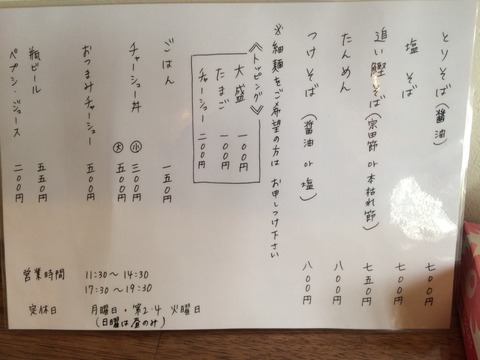 とりそば(醤油) 七〇〇円
塩そば 七〇〇円
追い鰹そば(宗田節or本枯れ節) 七五〇円
たんめん 八〇〇円
つけそば(醤油or塩) 八〇〇円
※細麺をご希望の方は お申しつけ下さい
《トッピング》
大盛 一〇〇円
たまご 一〇〇円
チャーシュー 二〇〇円
ごはん 一五〇円
チャーシュー丼 小 三〇〇円
大 五〇〇円
おつまみチャーシュー 五〇〇円
瓶ビール 五五〇円
ペプシ・ジュース 二〇〇円
営業時間 11:30〜14:30
17:30〜19:30
定休日 月曜日・第2・4 火曜日
(日曜は昼のみ)